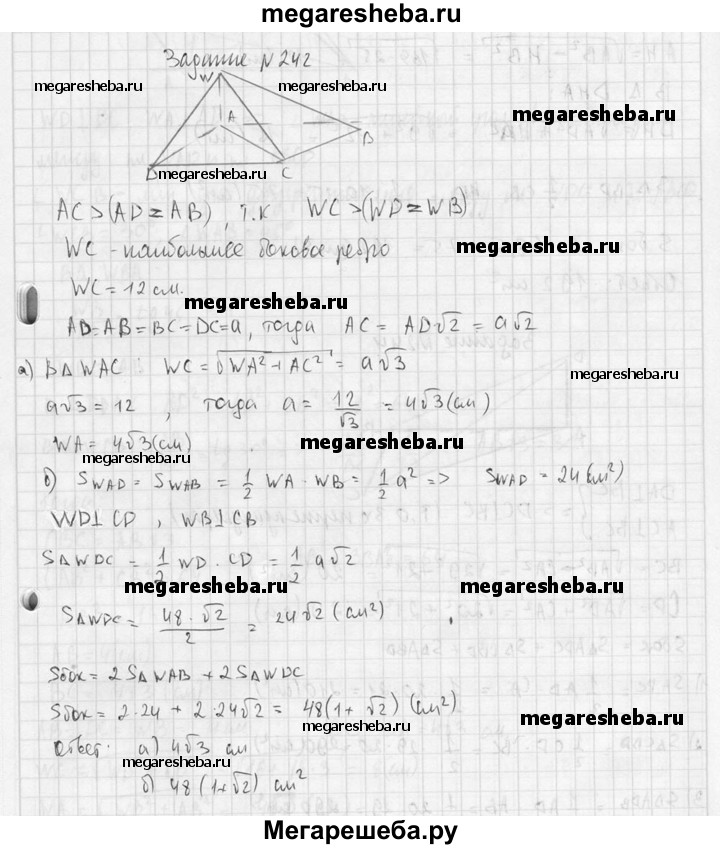 megaresheba.ru
Задание №242
W
megaresheba.ru
megaresheba.ru
megaresheba.ru
A
B
D
C
megaresheba.ru
AC > (AD = AB), т.к WC > (WD = WB)
WC - наибольшее боковое ребро
megaresheba.ru
WC = 12 см.
megaresheba.ru
AD = AB = BC = DC = a, тогда AC = AD√2 = a√2
а) В Δ WAC : WC = √WA² + AC² = a√3
megaresheba.ru
a√3 = 12 , тогда a = 12/√3 = 4√3 (см)
WA = 4√3 (см)
megaresheba.ru
megaresheba.ru
б) S WAD = S WAB = 1/2 WA · WB = 1/2 a² => S WAD = 24 (см²)
WD⊥CD , WB⊥CB
megaresheba.ru
S Δ WDC = 1/2 WD · CD = 1/2 a√2
megaresheba.ru
megaresheba.ru
S Δ WDC = 48 · √2/2 = 24√2 (см²)
megaresheba.ru
Sбок = 2S Δ WAB + 2S Δ WDC
Sбок = 2·24 + 2·24√2 = 48(1+ √2) (см²)
megaresheba.ru
megaresheba.ru
Ответ: а) 4√3 см
megaresheba.ru
б) 48 (1+√2) см²
Мегарешеба.ру